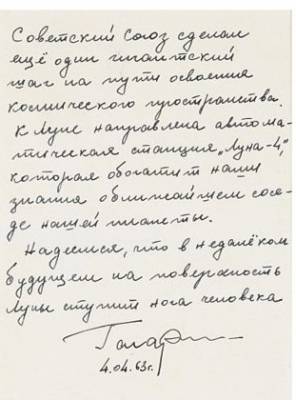 Советский Союз сделал
ещё один гигантский
шаг на пути освоения
космического пространства.
К Луне направлена автома-
тическая станция „Луна-4",
которая обогатит наши
знания о ближайшем сосе-
де нашей планеты.
Надеемся, что в недалёком
будущем на поверхность
Луны ступит нога человека
Гагарин
4.04.63г.